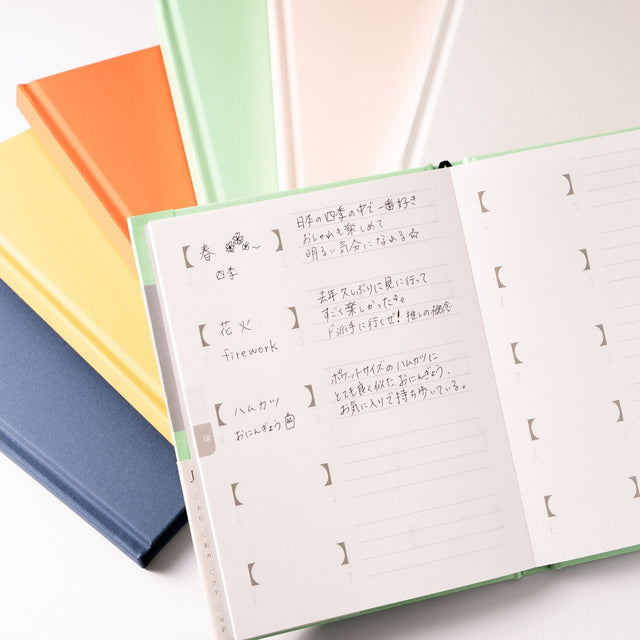 春
四季
日本の四季の中で一番好き
おしゃれも楽しめて
明るい気分になれる☆
花火
firework
去年久しぶりに見に行って
すごく楽しかった
ド派手に行くぜ！推しの概念
ハムカツ
おにんぎょう
ポケットサイズのハムカツに
とても良く似たおにんぎょう。
お気に入りで持ち歩いている。
は
J